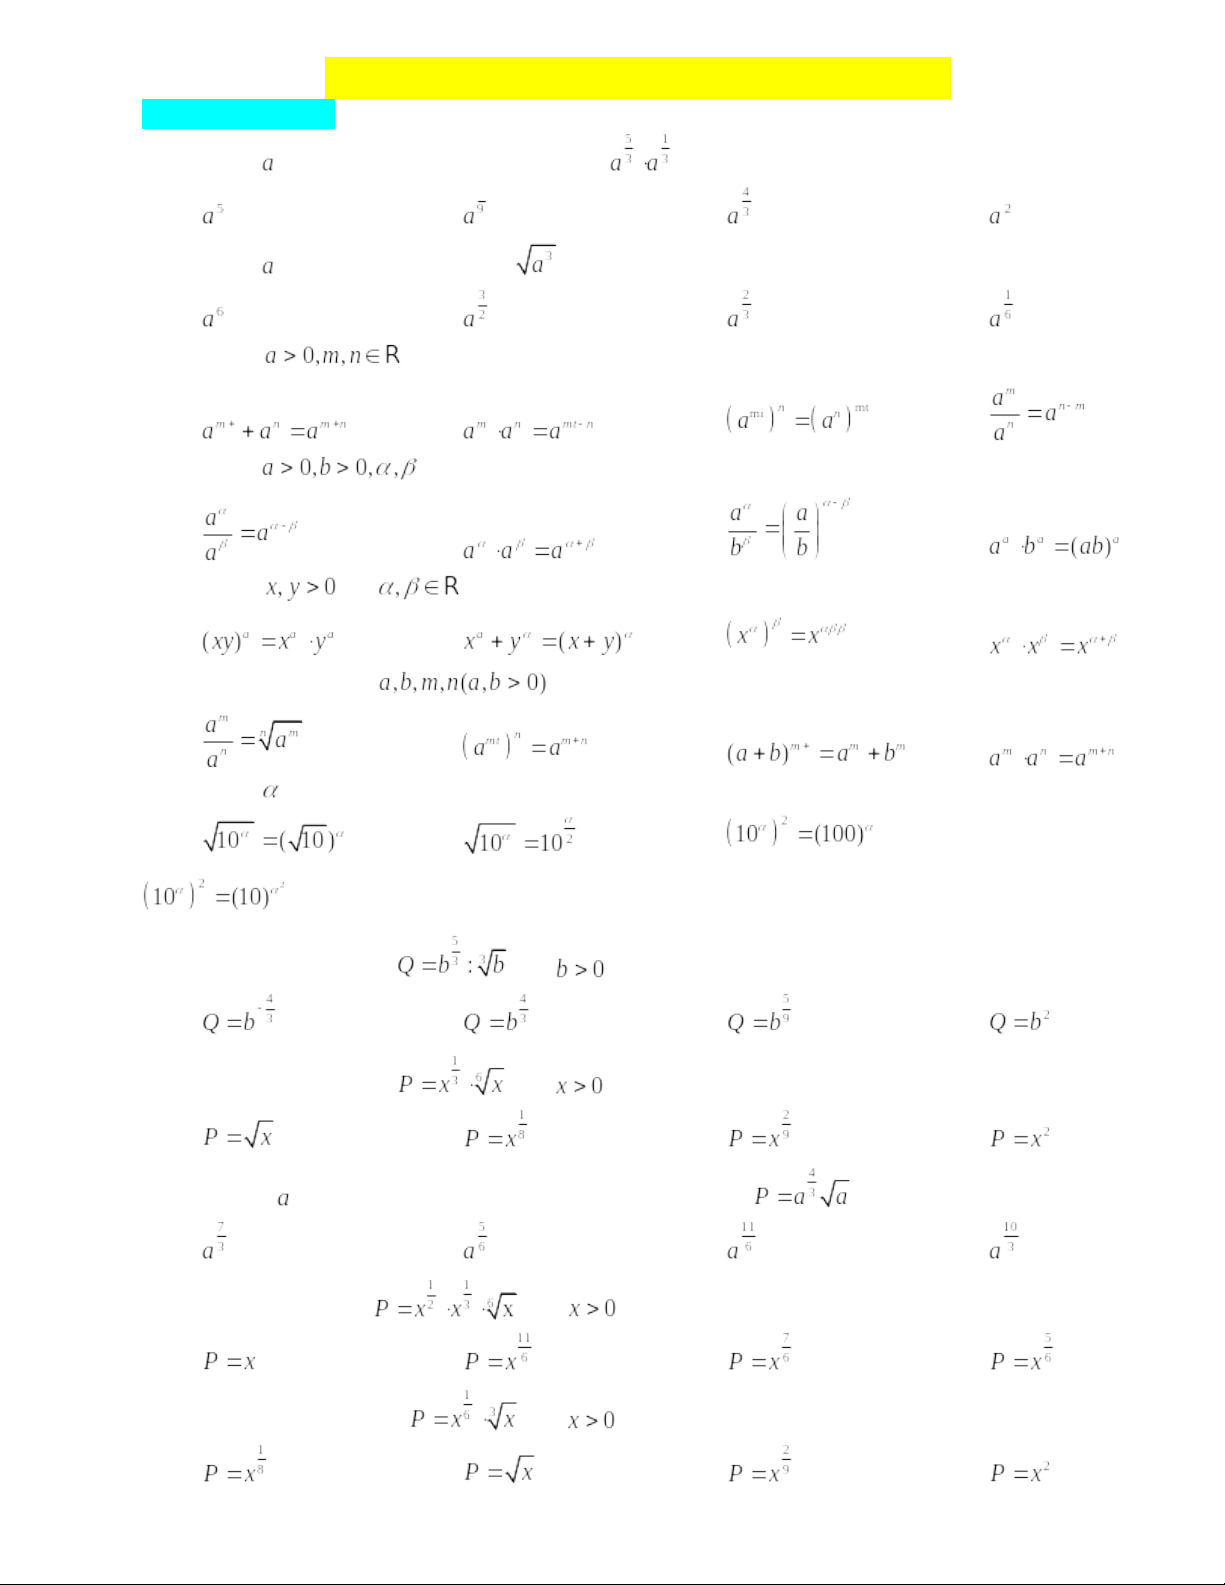 a a^{\frac{5}{3}} \cdot a^{\frac{1}{3}}
a^5 a^{\overline{9}} a^{\frac{4}{3}} a^2
a \sqrt{a^3}
a^6 a^{\frac{3}{2}} a^{\frac{2}{3}} a^{\frac{1}{6}}
a > 0, m, n ∈ R
a^{m+} + a^n = a^{m+n} a^m \cdot a^n = a^{mt-n} (a^{mt})^n = (a^n)^{mt} \frac{a^m}{a^n} = a^{n-m}
a > 0, b > 0, α, β
\frac{a^α}{a^β} = a^{α-β} a^α \cdot a^β = a^{α+β} \frac{a^α}{b^β} = \left(\frac{a}{b}\right)^{α-β} a^a \cdot b^a = (ab)^a
x, y > 0 α, β ∈ R
(xy)^a = x^a \cdot y^a x^a + y^α = (x + y)^α (x^α)^β = x^{αββ} x^α \cdot x^β = x^{α+β}
a, b, m, n(a, b > 0)
\frac{a^m}{a^n} = \sqrt[n]{a^m} (a^{mt})^n = a^{m+n} (a + b)^{m+} = a^m + b^m a^m \cdot a^n = a^{m+n}
α
\sqrt{10^α} = (\sqrt{10})^α \sqrt{10^α} = 10^{\frac{α}{2}} (10^α)^2 = (100)^α
(10^α)^2 = (10)^{α^2}
Q = b^{\frac{5}{3}} : \sqrt[3]{b} b > 0
Q = b^{-\frac{4}{3}} Q = b^{\frac{4}{3}} Q = b^{\frac{5}{9}} Q = b^2
P = x^{\frac{1}{3}} \cdot \sqrt[6]{x} x > 0
P = \sqrt{x} P = x^{\frac{1}{8}} P = x^{\frac{2}{9}} P = x^2
a P = a^{\frac{4}{3}} \sqrt{a}
a^{\frac{7}{3}} a^{\frac{5}{6}} a^{\frac{11}{6}} a^{\frac{10}{3}}
P = x^{\frac{1}{2}} \cdot x^{\frac{1}{3}} \cdot \sqrt[6]{x} x > 0
P = x P = x^{\frac{11}{6}} P = x^{\frac{7}{6}} P = x^{\frac{5}{6}}
P = x^{\frac{1}{6}} \cdot \sqrt[3]{x} x > 0
P = x^{\frac{1}{8}} P = \sqrt{x} P = x^{\frac{2}{9}} P = x^2